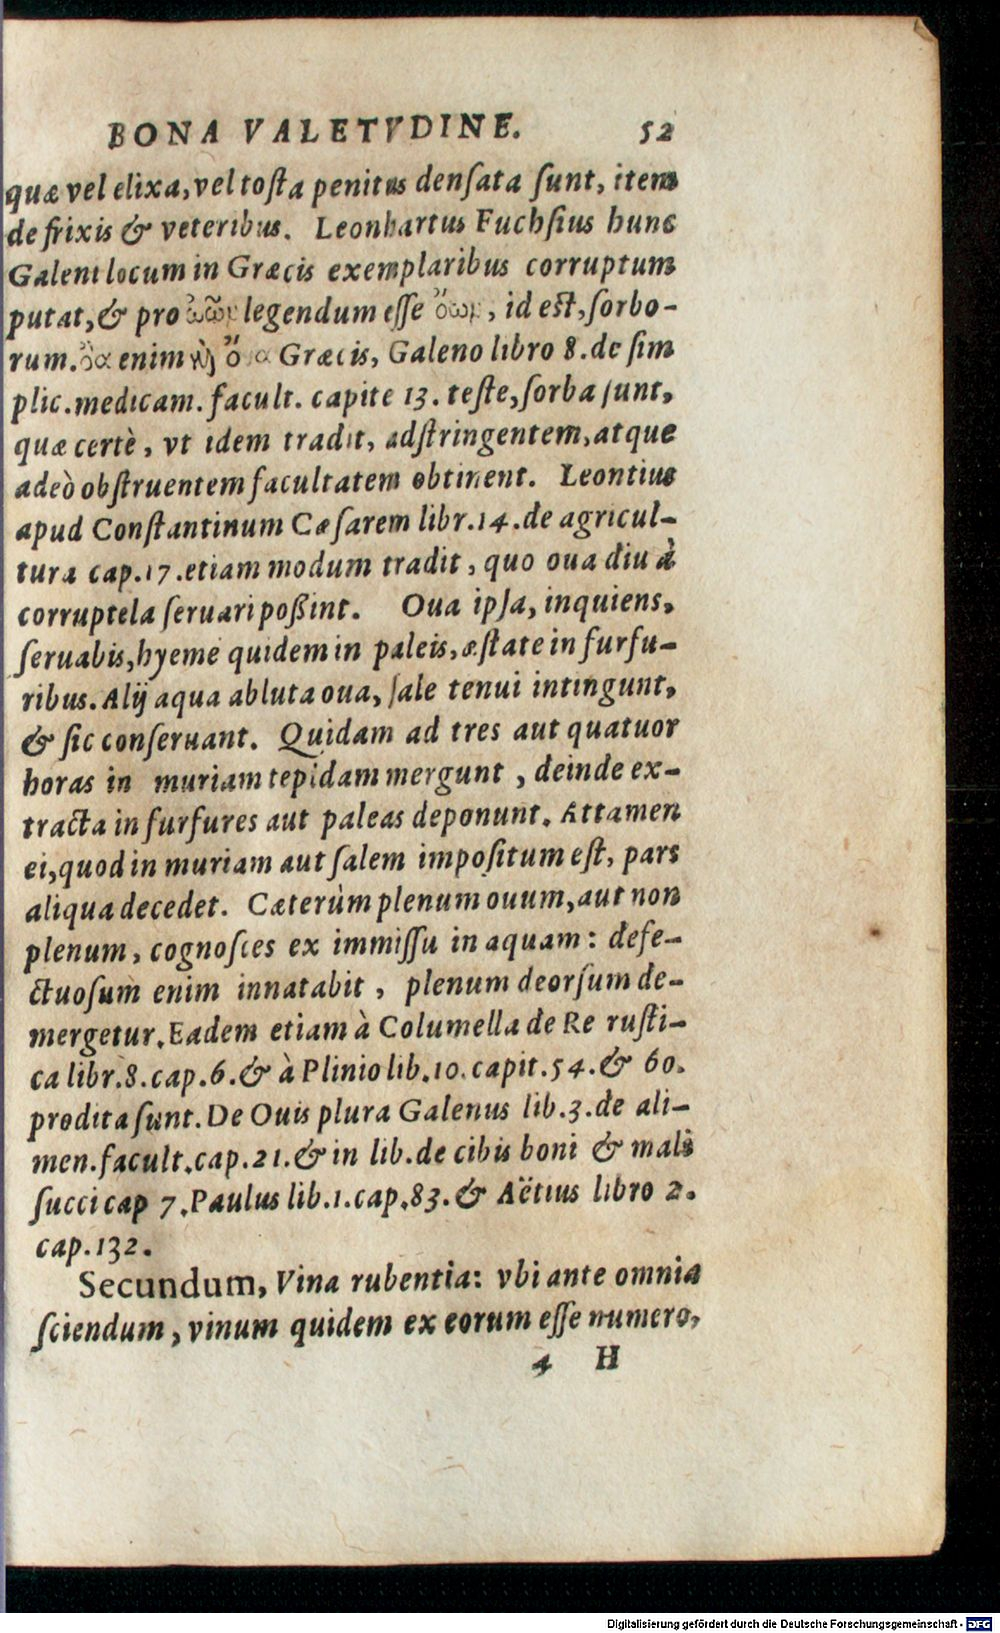 BONA VALETVDINE. 52
quæ vel elixa, vel tosta penitus densata sunt, item
de frixis & veteribus. Leonhartus Fuchsius hunc
Galeni locum in Græcis exemplaribus corruptum
putat, & pro ὠῶν legendum esse ὄων, id est, sorbo-
rum. ὄα enim καὶ ὄα Græcis, Galeno libro 8. de sim
plic. medicam. facult. capite 13. teste, sorba sunt,
quæ certè, vt idem tradit, adstringentem, atque
adeò obstruentem facultatem obtinent. Leontius
apud Constantinum Cæsarem libr. 14. de agricul-
tura cap. 17. etiam modum tradit, quo oua diu à
corruptela seruari poßint. Oua ipsa, inquiens,
seruabis, hyeme quidem in paleis, æstate in furfu-
ribus. Alij aqua abluta oua, sale tenui intingunt,
& sic conseruant. Quidam ad tres aut quatuor
horas in muriam tepidam mergunt, deinde ex-
tracta in furfures aut paleas deponunt. Attamen
ei, quod in muriam aut salem impositum est, pars
aliqua decedet. Cæterùm plenum ouum, aut non
plenum, cognosces ex immissu in aquam: defe-
ctuosum enim innatabit, plenum deorsum de-
mergetur. Eadem etiam à Columella de Re rusti-
ca libr. 8. cap. 6. & à Plinio lib. 10. capit. 54. & 60.
prodita sunt. De Ouis plura Galenus lib. 3. de ali-
men. facult. cap. 21. & in lib. de cibis boni & mali
succi cap 7. Paulus lib. 1. cap. 83. & Aëtius libro 2.
cap. 132.
Secundum, Vina rubentia: vbi ante omnia
sciendum, vinum quidem ex eorum esse numero,
4 H
Digitalisierung gefördert durch die Deutsche Forschungsgemeinschaft - DFG